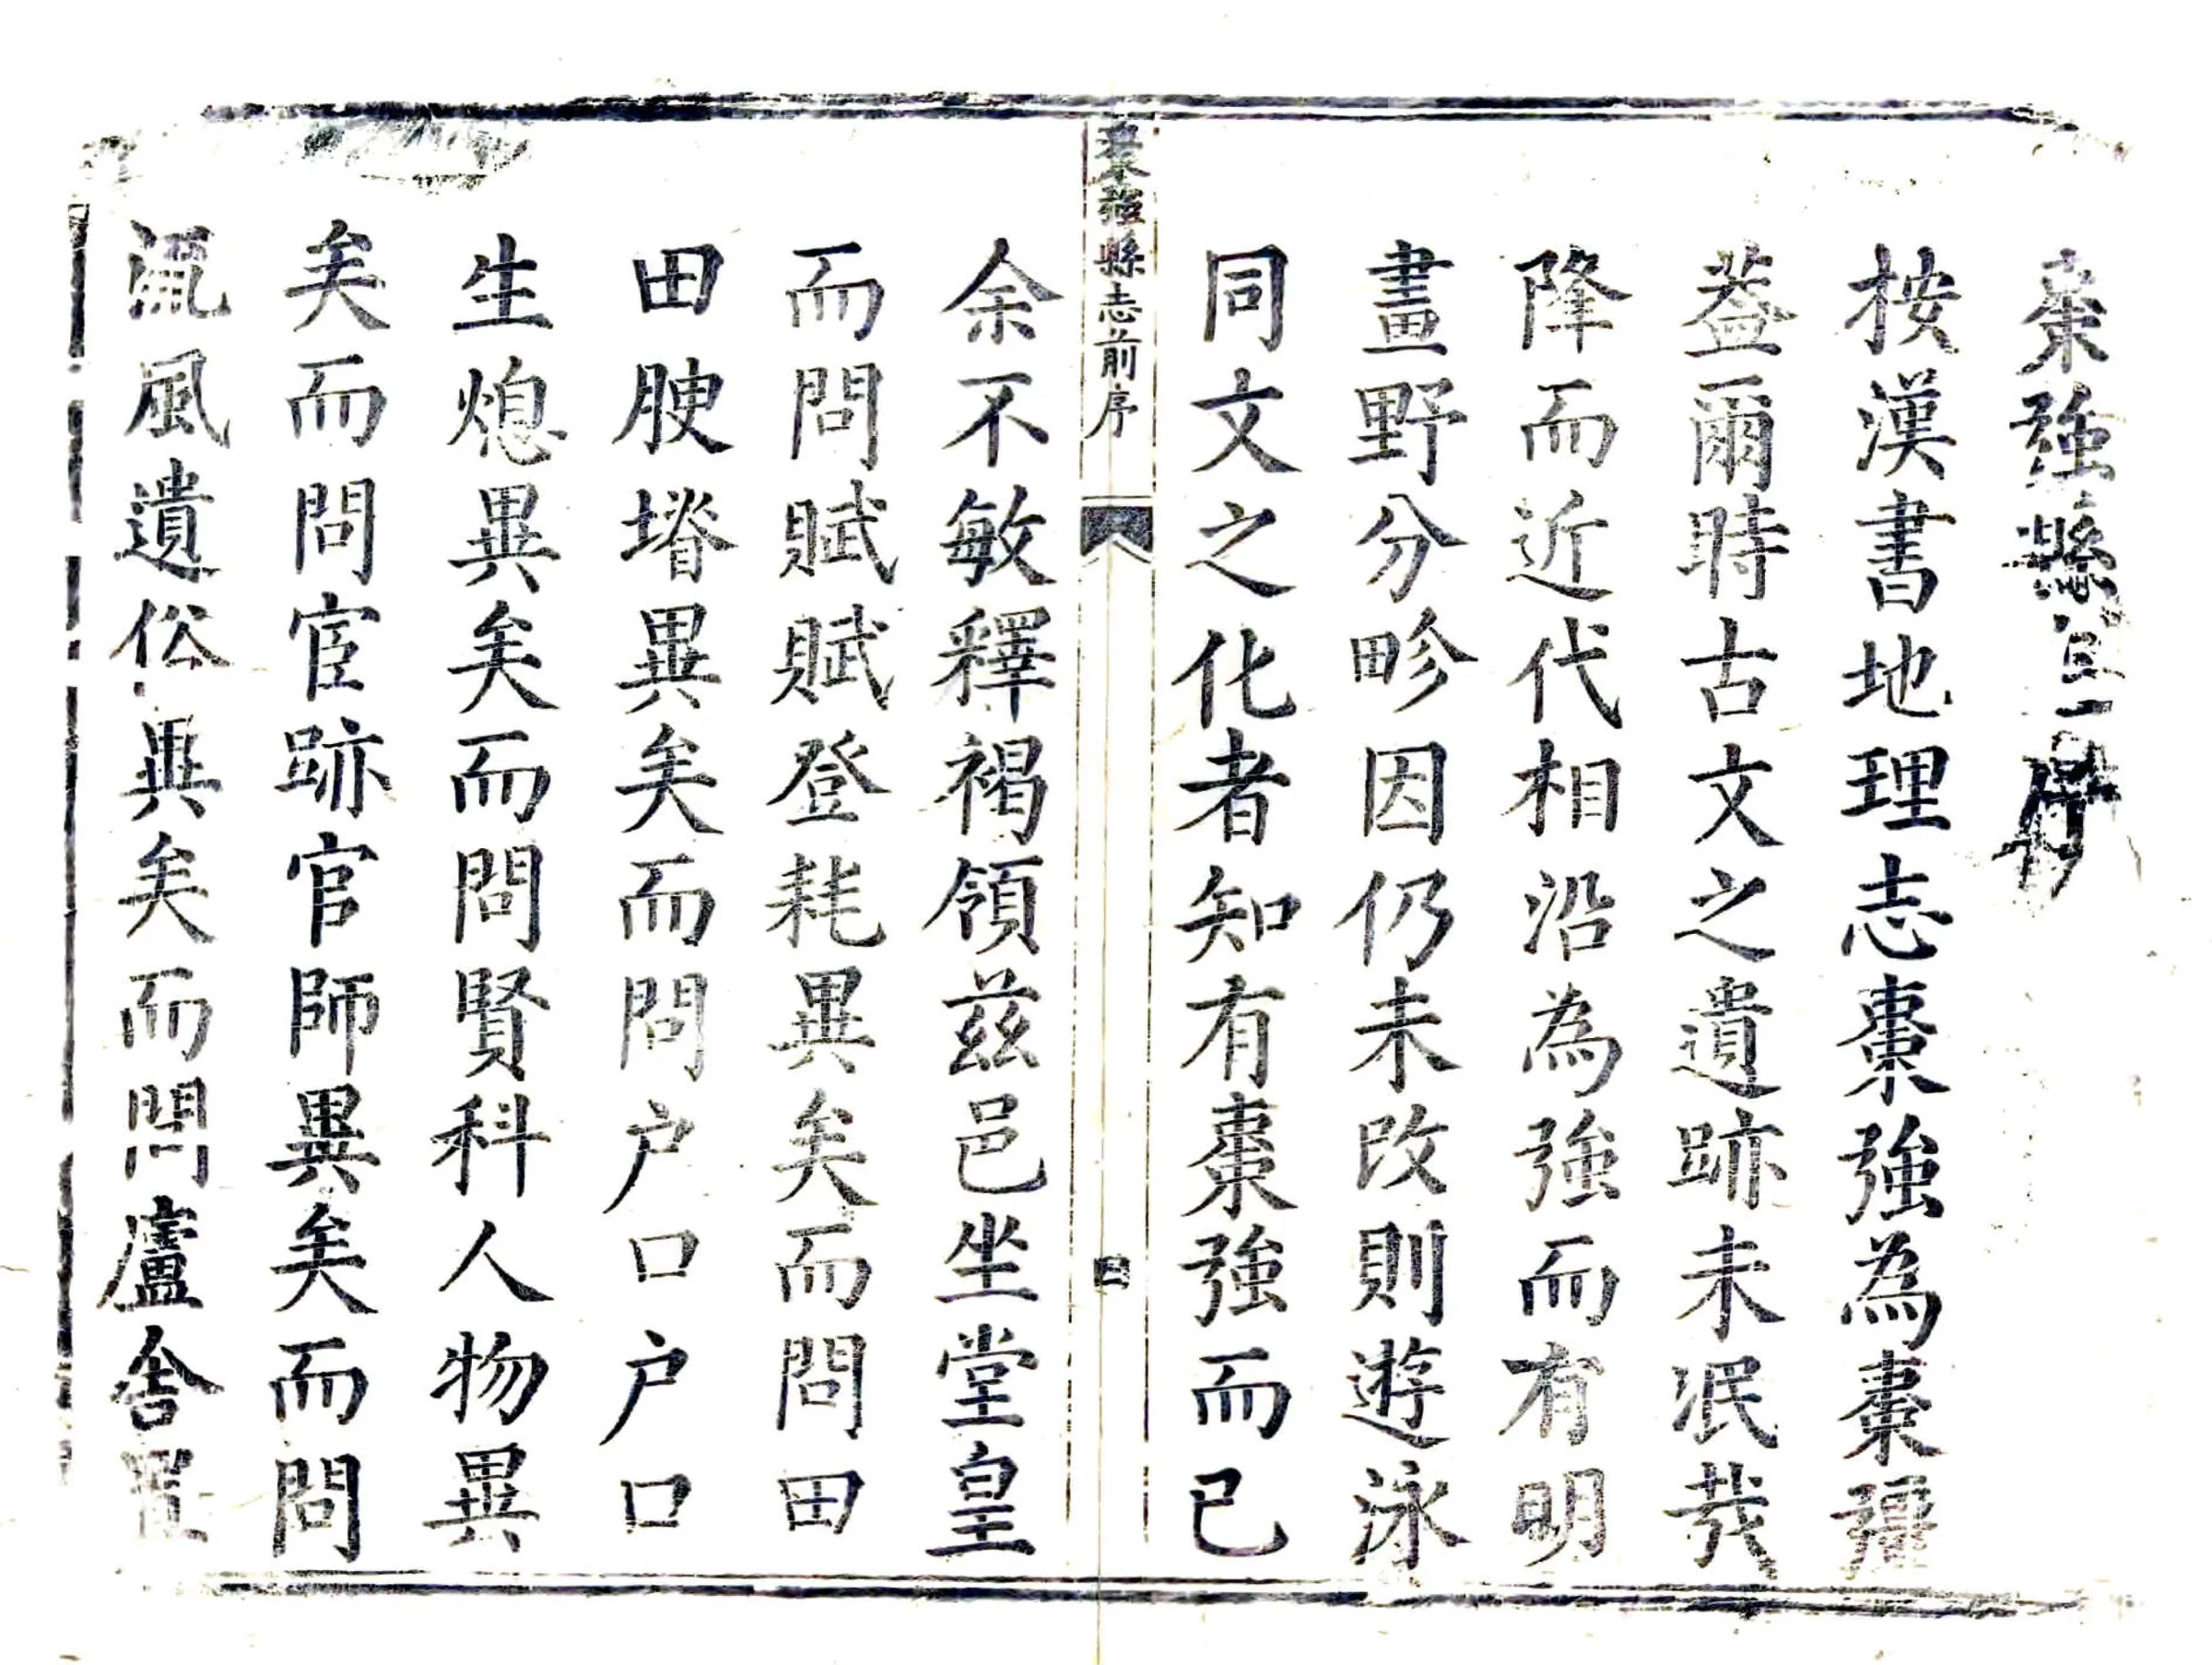 棗強縣志序
按漢書地理志棗強為棗彊
葢爾時古文之遺跡未泯哉
降而近代相沿為強而有明
畫野分畛因仍未改則遊泳
同文之化者知有棗強而已
棗強縣志前序
余不敏釋褐領茲邑坐堂皇
而問賦賦登耗異矣而問田
田腴塉異矣而問户口户口
生熄異矣而問賢科人物異
矣而問宦跡官師異矣而問
流風遺俗異矣而問廬舍置